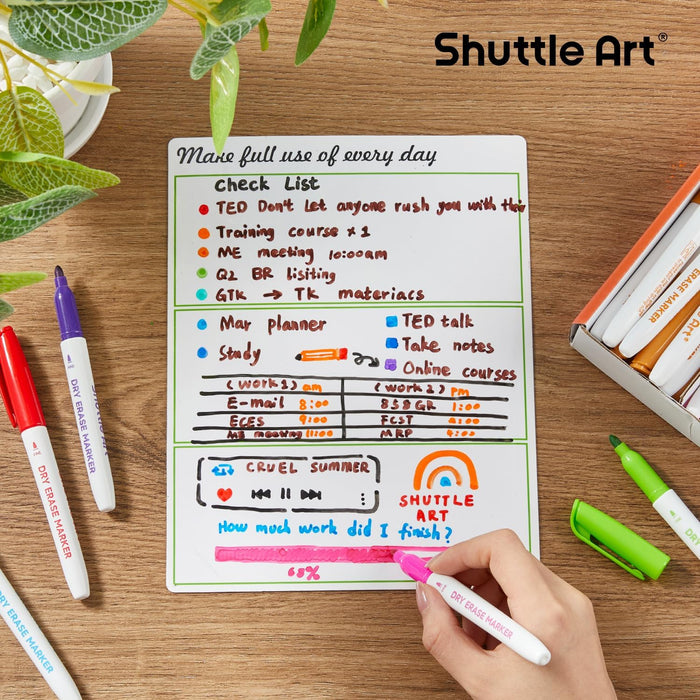 Shuttle Art®
Make full use of every day
Check List
TED Don't Let anyone rush you with their
Training course x 1
ME meeting 10:00am
Q2 BR lisiting
GTK → TK materiacs
Mar planner
TED talk
Study
Take notes
Online courses
(work 1) am
(work 2) pm
E-mail 8:00
858 GR 1:00
ECES 9:00
FCST
ME meeting 11:00
MRP
CRUEL SUMMER
SHUTTLE
ART
How much work did I finish?
68%
DRY ERASE MARKER
DRY ERASE MARKER
DRY ERASE MARKER
DRY ERASE MARKER